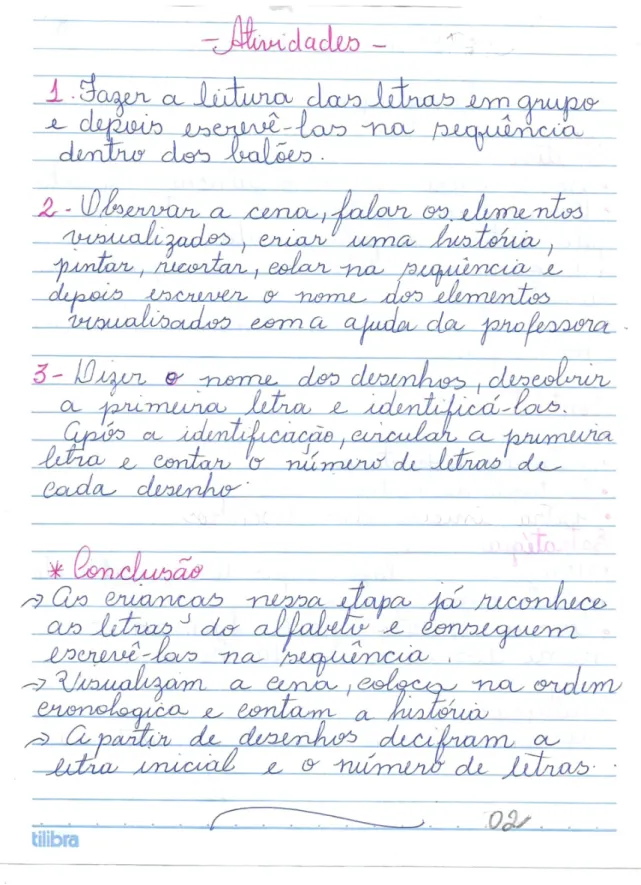 - Atividades -
1. Fazer a leitura das letras em grupo
e depois escrevê-las na sequência
dentro dos balões.
2 - Observar a cena, falar os elementos
visualizados, criar uma história,
pintar, recortar, colar na sequência e
depois escrever o nome dos elementos
visualisados com a ajuda da professora.
3 - Dizer o nome dos desenhos, descobrir
a primeira letra e identificá-las.
Após a identificação, circular a primeira
letra e contar o número de letras de
cada desenho.
* Conclusão
→ As criancas nessa etapa já reconhece
as letras do alfabeto e conseguem
escrevê-las na sequência.
→ Visualizam a cena, coloca na ordem
cronologica e contam a história
→ A partir de desenhos decifram a
letra inicial e o número de letras.
02
tilibra